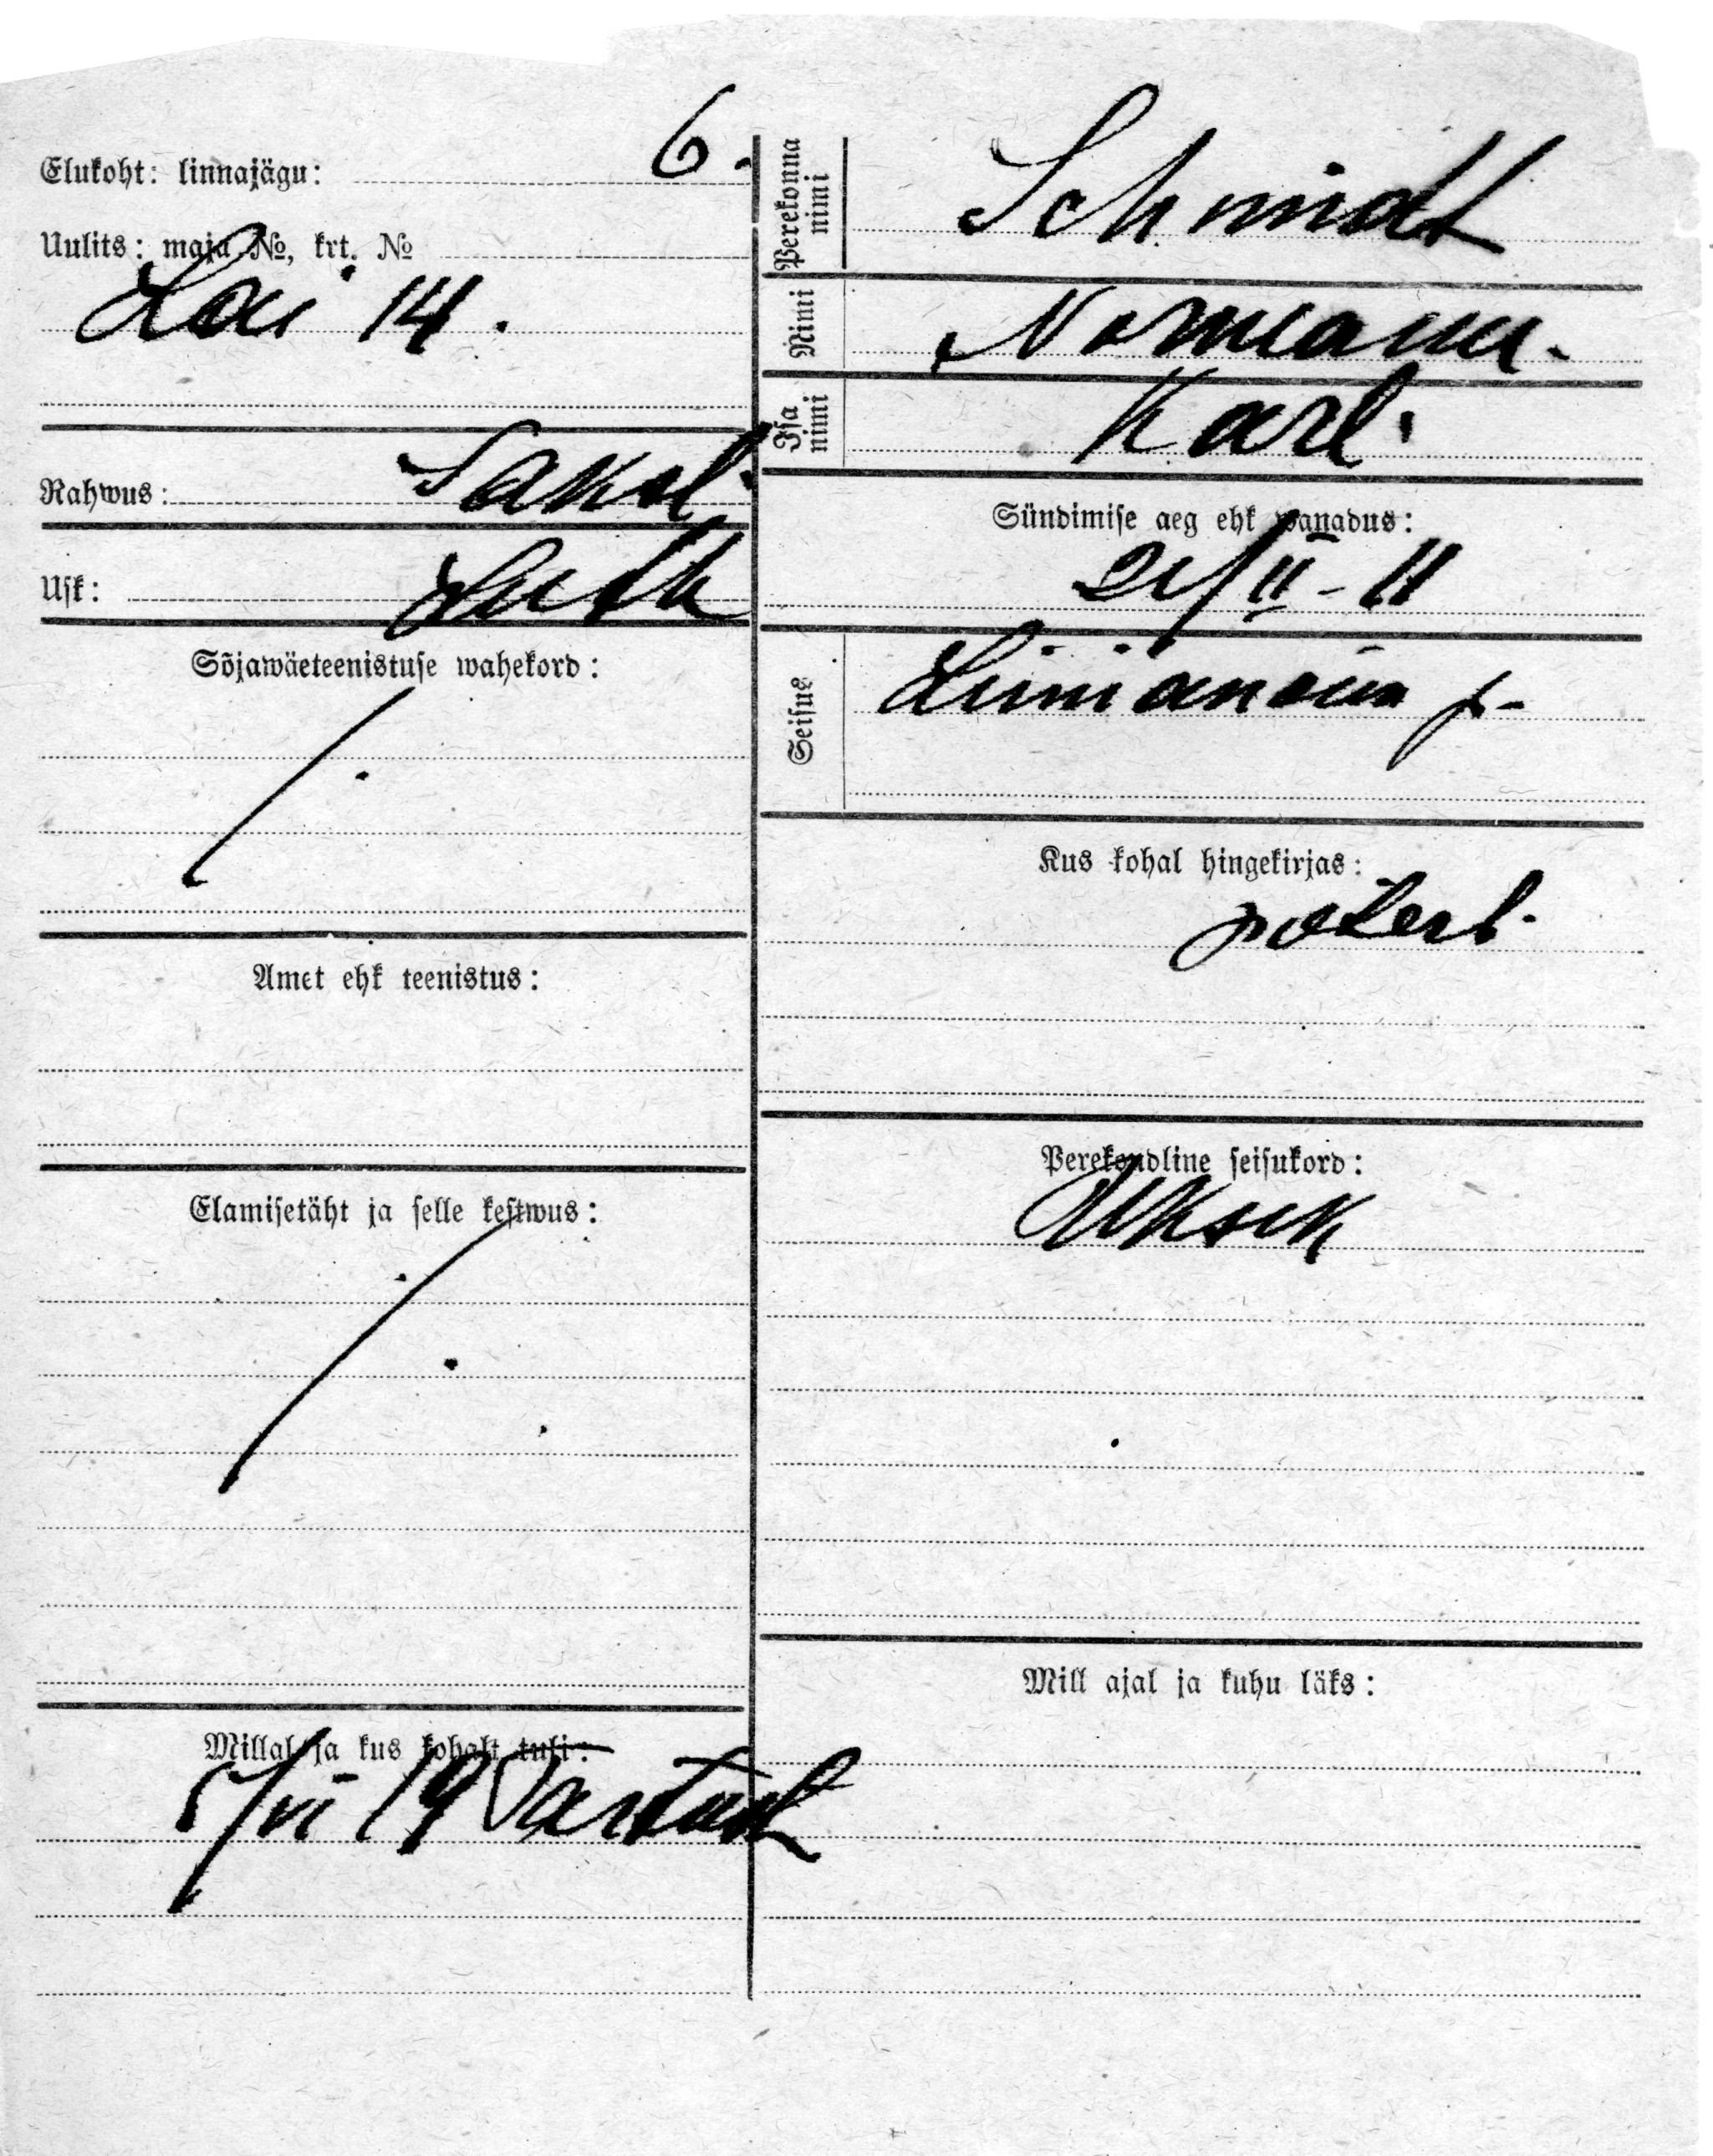 Elukoht: linnajägu: 6.
Uulits: maja №, krt. №
Lai 14.
Rahwus: Saksl.
Usk: Luth
Sõjawäeteenistuse wahekord:
Amet ehk teenistus:
Elamisetäht ja selle kestwus:
Millal ja kus kohalt tuli:
5/VI 19 Tartust
Perekonna nimi Schmidt
Nimi Normann.
Isa nimi Karl.
Sündimise aeg ehk wanadus:
21/II - 11
Seisus
Kus kohal hingekirjas:
Peterb.
Perekondline seisukord:
Üksik
Mill ajal ja kuhu läks: